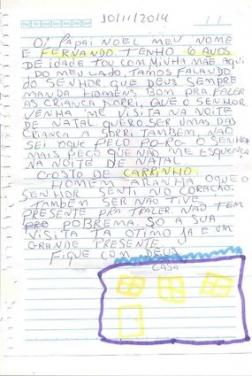 30/11/2014
Oi PAPAI NOEL MEU NOME
E FERNANDO TENHO 6 ANOS
DE IDADE TOU COM MINHA MÃE AQUI
DO MEU LADO. TAMOS FALANDO
DO SENHOR QUE DEUS SEMPRE
MANDA HOMENS BOM PRA FAZER
AS CRIANÇA SORRI, QUE O SENHOR
VENHA ME VISITA NA NOITE
DE NATAL QUERO SER UMA DAS
CRIANÇA A SORRI TAMBEM, NÃO
SEI OQUE PEÇO PARA O SENHOR
MAIS PEÇO QUE NÃO ME ESQUEÇA
NA NOITE DE NATAL
GOSTO DE CARRINHO
HOMEM ARANHA OQUE O
SENHOR SENTI NO CORAÇÃO.
TAMBEM SER NÃO TIVE
PRESENTE PRA TRAZER NÃO TEM
PROBREMA SO A SUA
VISITA É OTIMO JA E UM
GRANDE PRESENTE
FIQUE COM DEUS
CASA